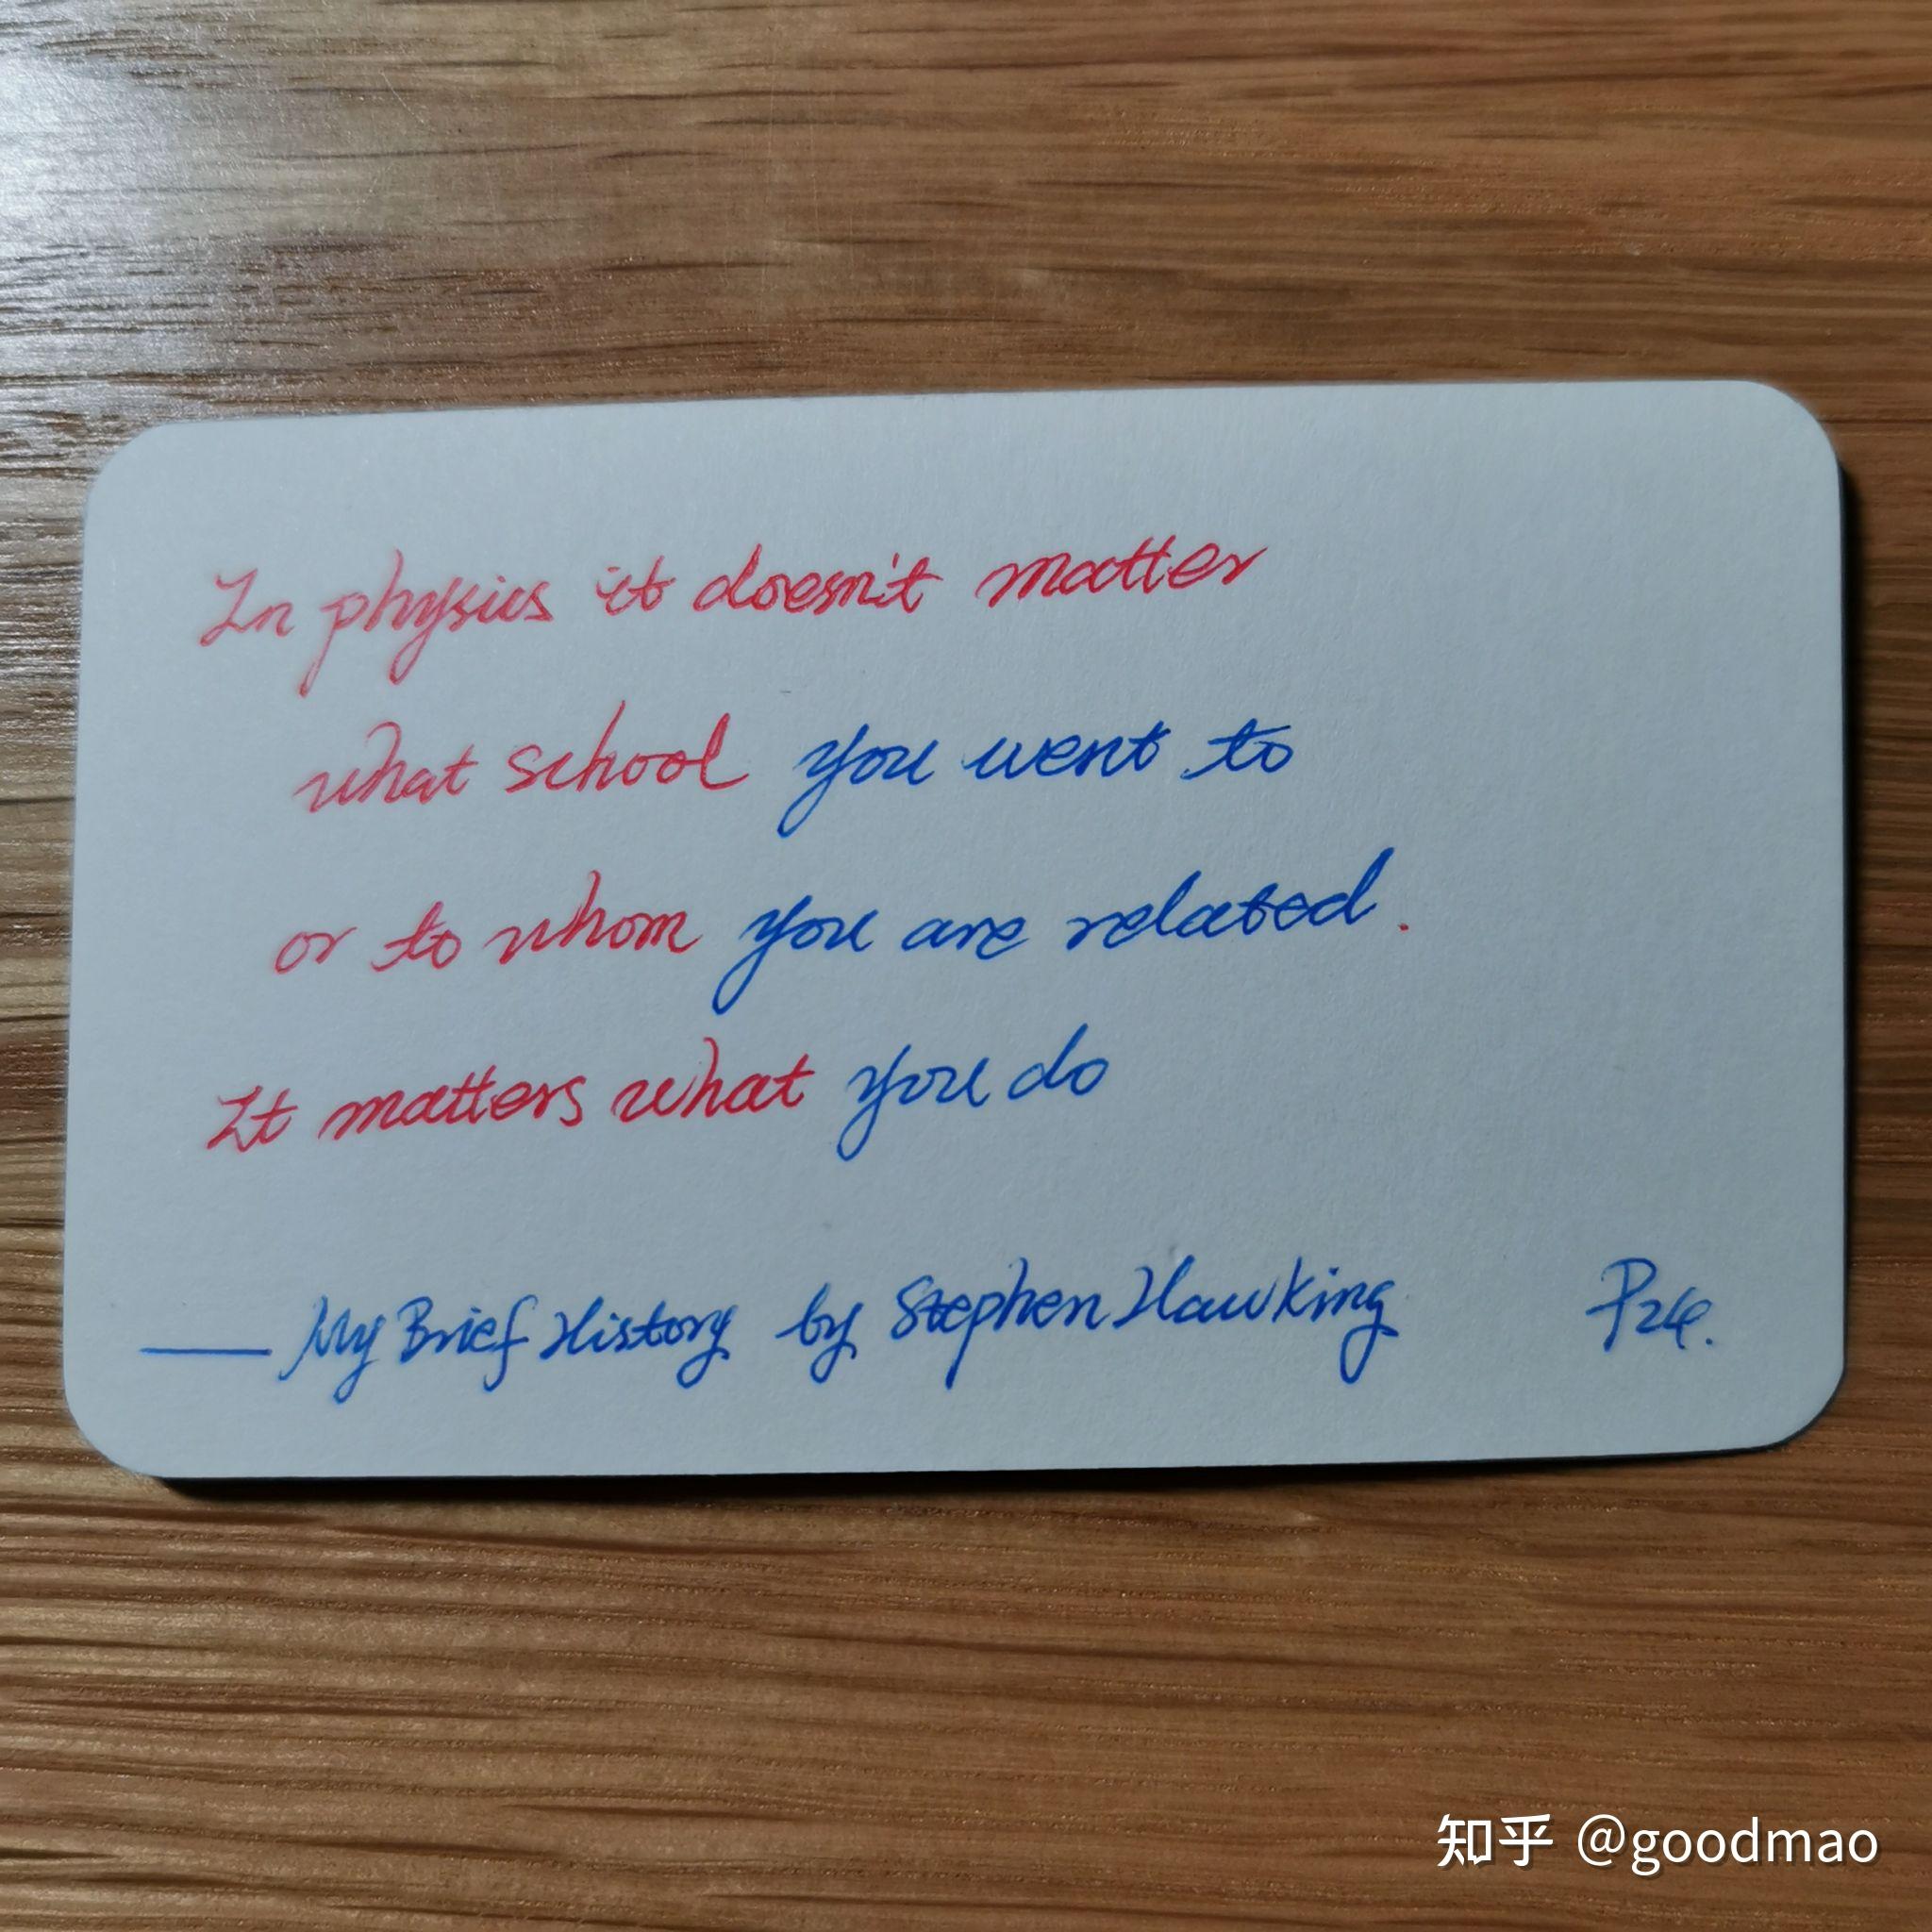 In physics it doesn't matter
what school you went to
or to whom you are related.
It matters what you do
—— My Brief History by Stephen Hawking P24.
知乎 @goodmao